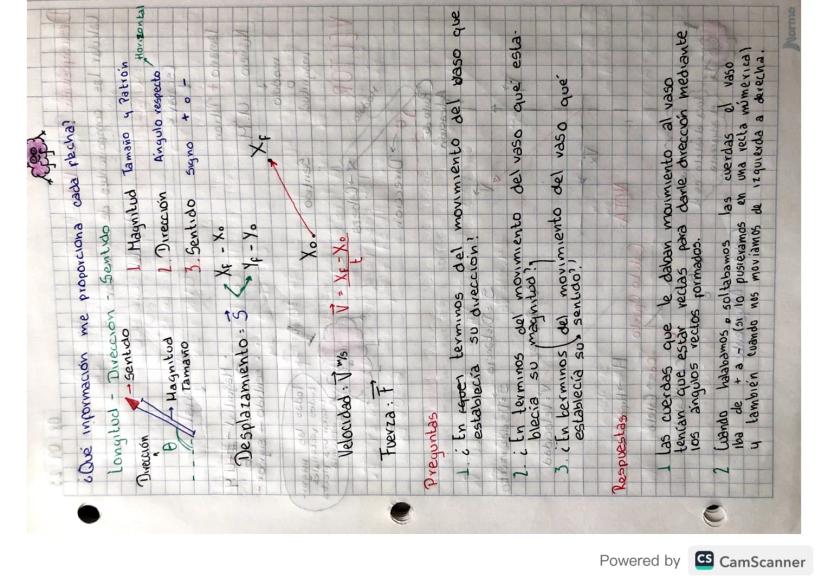 ¿Qué información me proporciona cada flecha?
Longitud - Dirección - Sentido
Dirección
Sentido
θ
Magnitud
Tamaño
1. Magnitud Tamaño y Patrón
2. Dirección Ángulo respecto Horizontal
3. Sentido signo + o -
Desplazamiento: S
XF - X0
YF - Y0
X0
XF
Velocidad: V m/s
V = XF - X0
t
Fuerza: F
Preguntas
1. ¿En terminos del movimiento del vaso que
establecía su dirección?
2. ¿En terminos del movimiento del vaso qué esta-
blecía su magnitud?
3. ¿En terminos del movimiento del vaso qué
establecía su sentido?
Respuestas
1 Las cuerdas que le daban movimiento al vaso
tenían que estar rectas para darle dirección mediante
los ángulos rectos formados.
2 Cuando halabamos o soltabamos las cuerdas el vaso
iba de + a - (si lo pusieramos en una recta númerica)
y también cuando nos moviamos de izquierda a derecha.
Norma
Powered by CS CamScanner